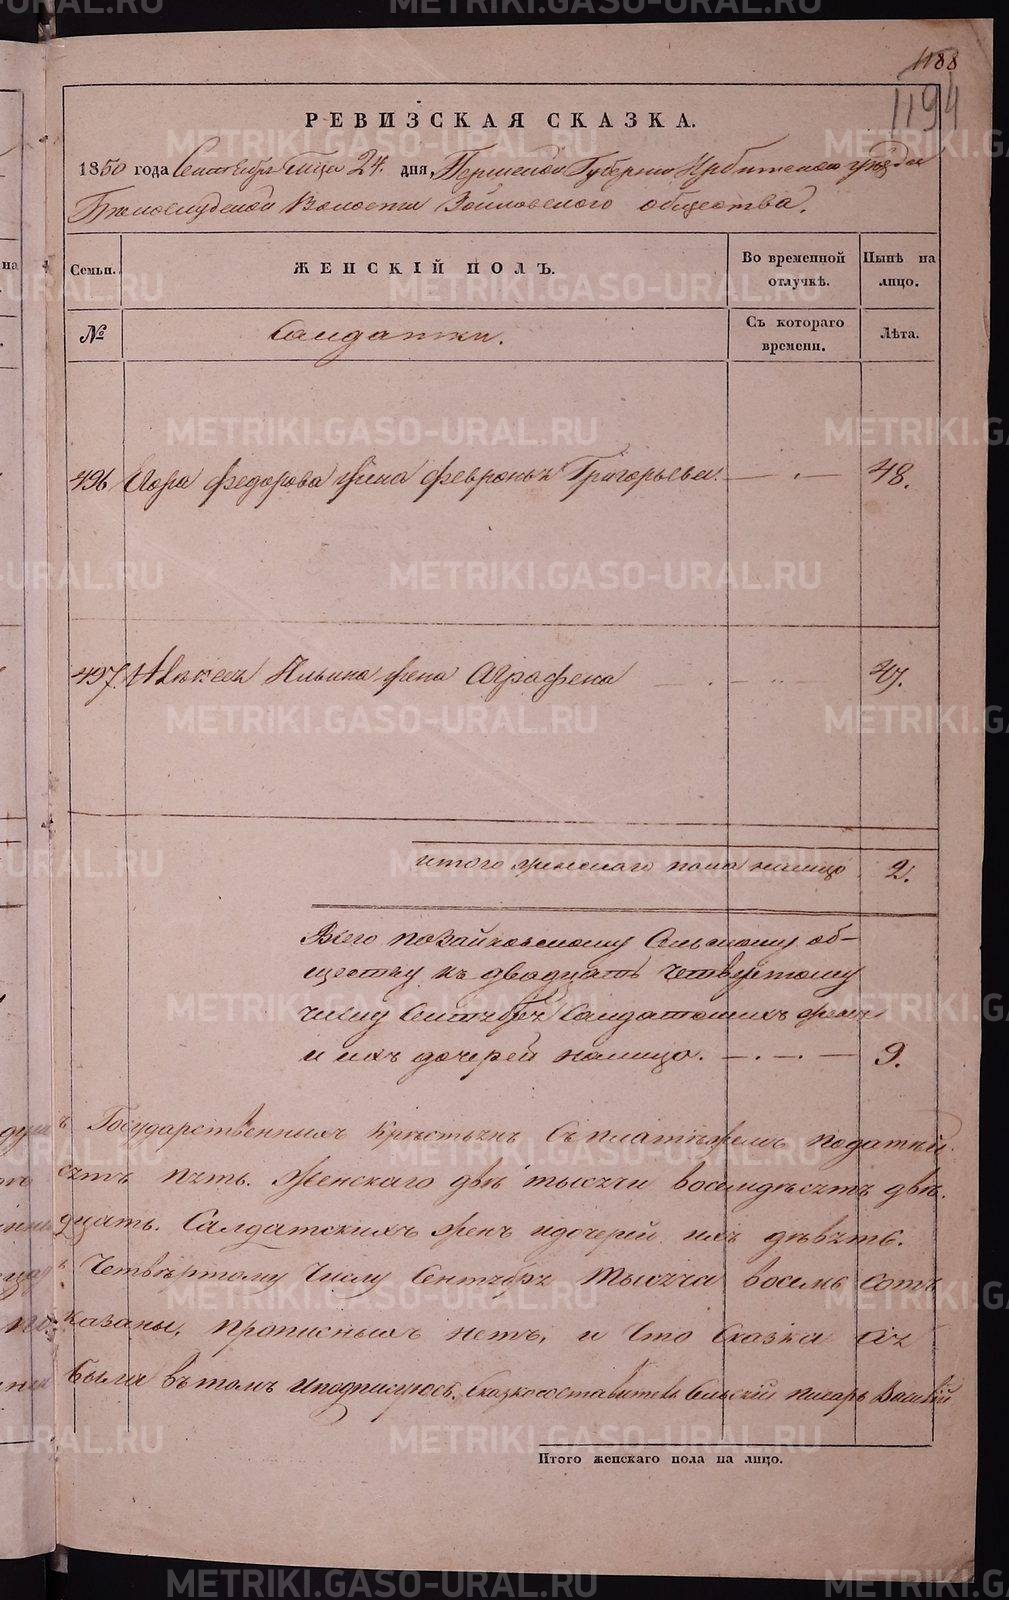 1188
1194
РЕВИЗСКАЯ СКАЗКА.
1850 года Сентября мца 24. дня, Пермской Губернии Ирбитского уезда
Белослудской Волости Зайковского общества.
Семьи. ЖЕНСКІЙ ПОЛЪ. Во временной отлучкѣ. Нынѣ на лицо.
№ Салдатки. Съ котораго времени. Лѣта.
496 федорова жена февронья Григорьева. 48.
497. Алексея Ильина жена Аграфена 47.
итого женскаго пола налицо 2.
Всего по Зайковскому Сельскому об-
ществу къ двадцать четвертому
числу Сентября Салдатскихъ жен
и ихъ дочерей налицо. 9.
Государственныхъ Крестьянъ Съ платежемъ податей
сятъ пять. Женскаго две тысячи восемдесятъ две.
дцать. Салдатскихъ жен и дочерей ихъ девять.
Четвертому Числу Сентября Тысяча восемь сотъ
казаны, прописныхъ нетъ, и Что Сказка
были въ томъ и подписуюсь. Сказкосоставитель Сельскій писарь Василій
Итого женскаго пола на лицо.
METRIKI.GASO-URAL.RU